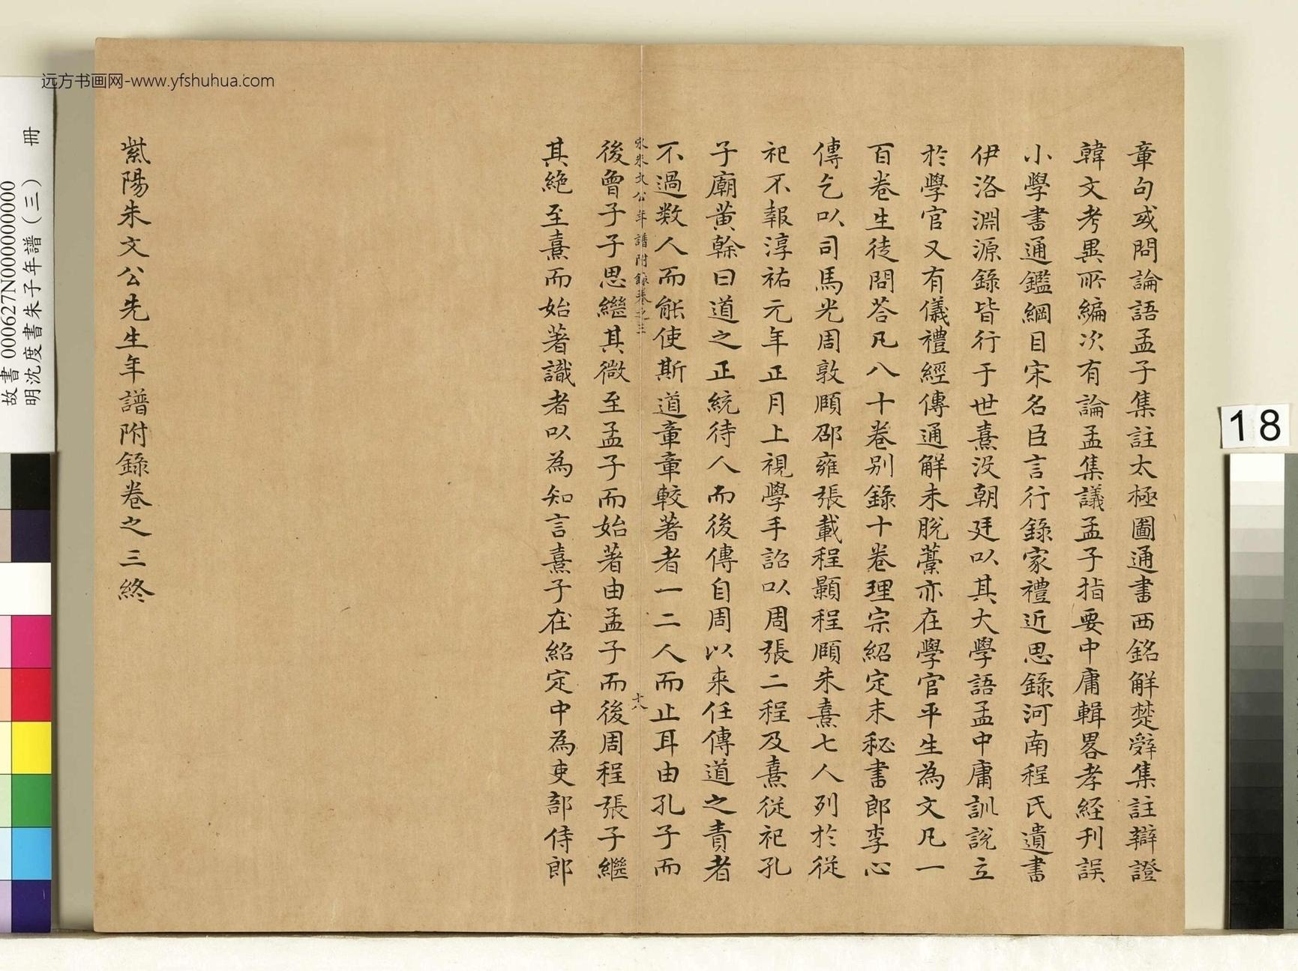 远方书画网-www.yfshuhua.com
章句或問論語孟子集註太極圖通書西銘解楚辭集註辯證
韓文考異所編次有論孟集議孟子指要中庸輯畧孝經刊誤
小學書通鑑綱目宋名臣言行錄家禮近思錄河南程氏遺書
伊洛淵源錄皆行于世熹没朝廷以其大學語孟中庸訓說立
於學官又有儀禮經傳通解未脫藁亦在學官平生為文凡一
百卷生徒問荅凡八十卷别錄十卷理宗紹定末秘書郎李心
傳乞以司馬光周敦頤邵雍張載程顥程頤朱熹七人列於從
祀不報淳祐元年正月上視學手詔以周張二程及熹從祀孔
子廟黃榦曰道之正統待人而後傳自周以来任傳道之責者
不過数人而能使斯道章章較著者一二人而止耳由孔子而
宋朱文公年譜附錄卷之三
十八
後曾子子思繼其微至孟子而始著由孟子而後周程張子繼
其絶至熹而始著識者以為知言熹子在紹定中為吏部侍郎
紫陽朱文公先生年譜附錄卷之三終
冊
故書 000627N000000000
明沈度書朱子年譜(三)
18